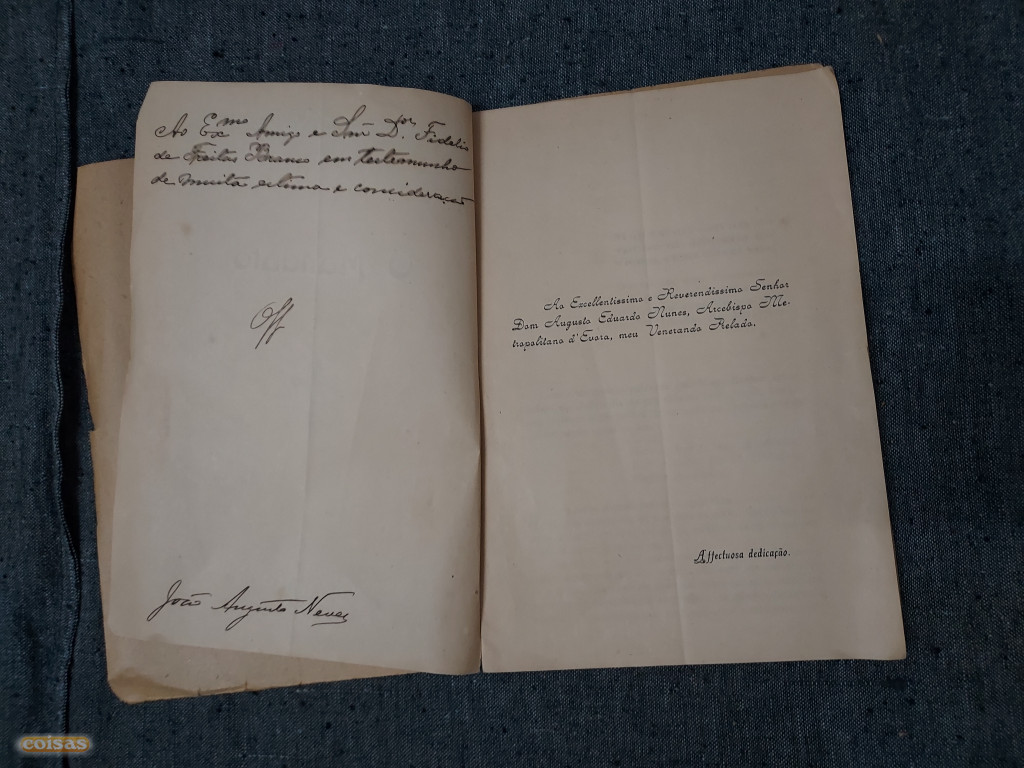 Ao Exmo Amigo e Snr Dor. Fidelio
de Freitas Branco em testemunho
de muita estima e consideração
Off
João Augusto Neves
Ao Excellentissimo e Reverendissimo Senhor
Dom Augusto Eduardo Nunes, Arcebispo Me-
tropolitano d'Evora, meu Venerando Prelado.
Affectuosa dedicação.
coisas